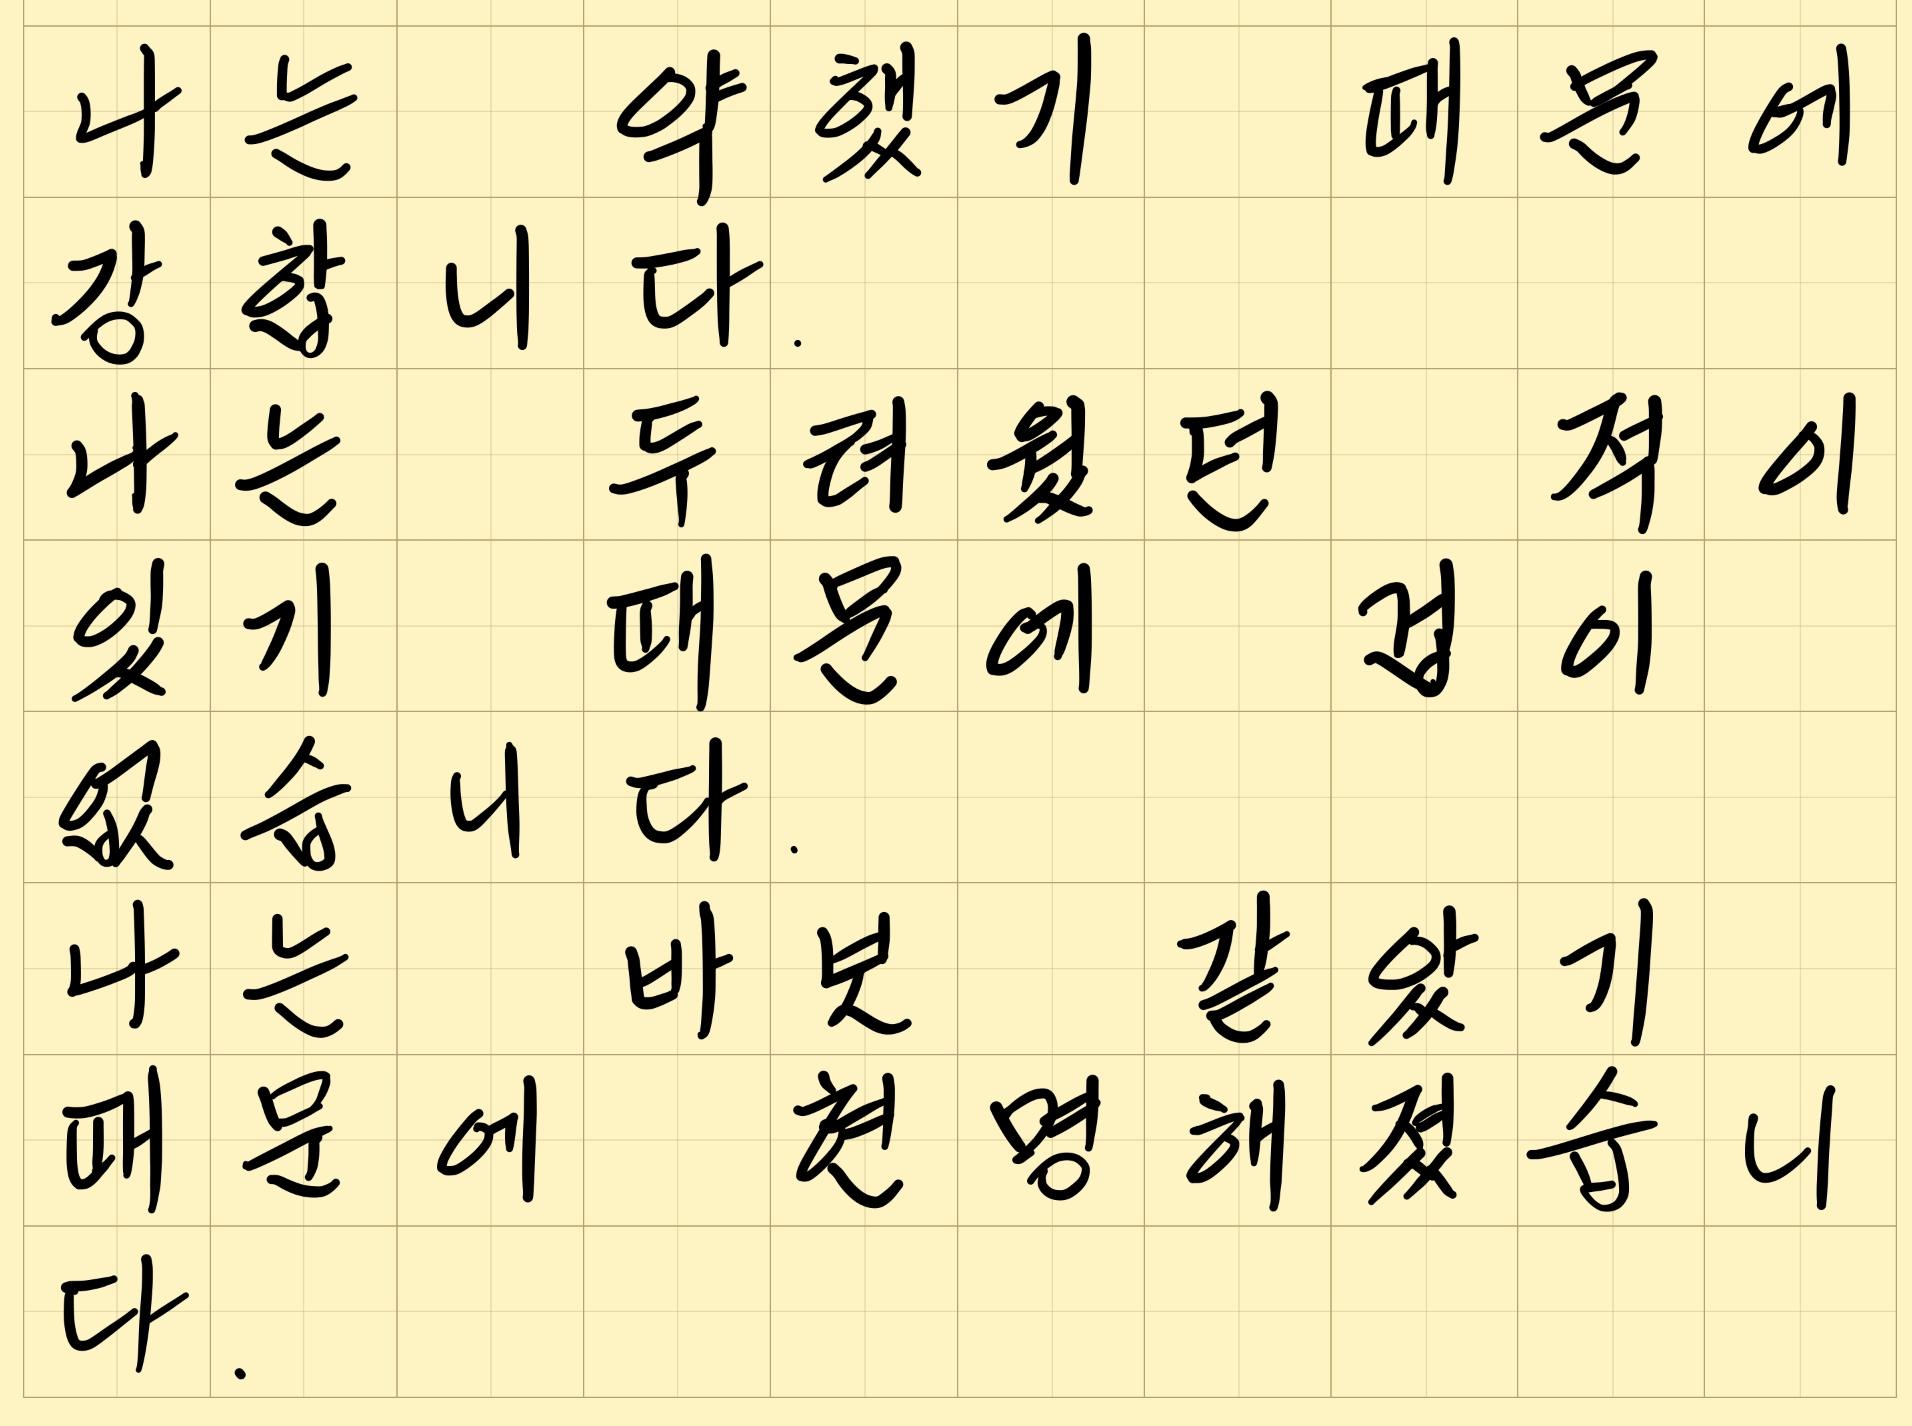 나는 약했기 때문에
강합니다.
나는 두려웠던 적이
있기 때문에 겁이
없습니다.
나는 바보 같았기
때문에 현명해졌습니
다.